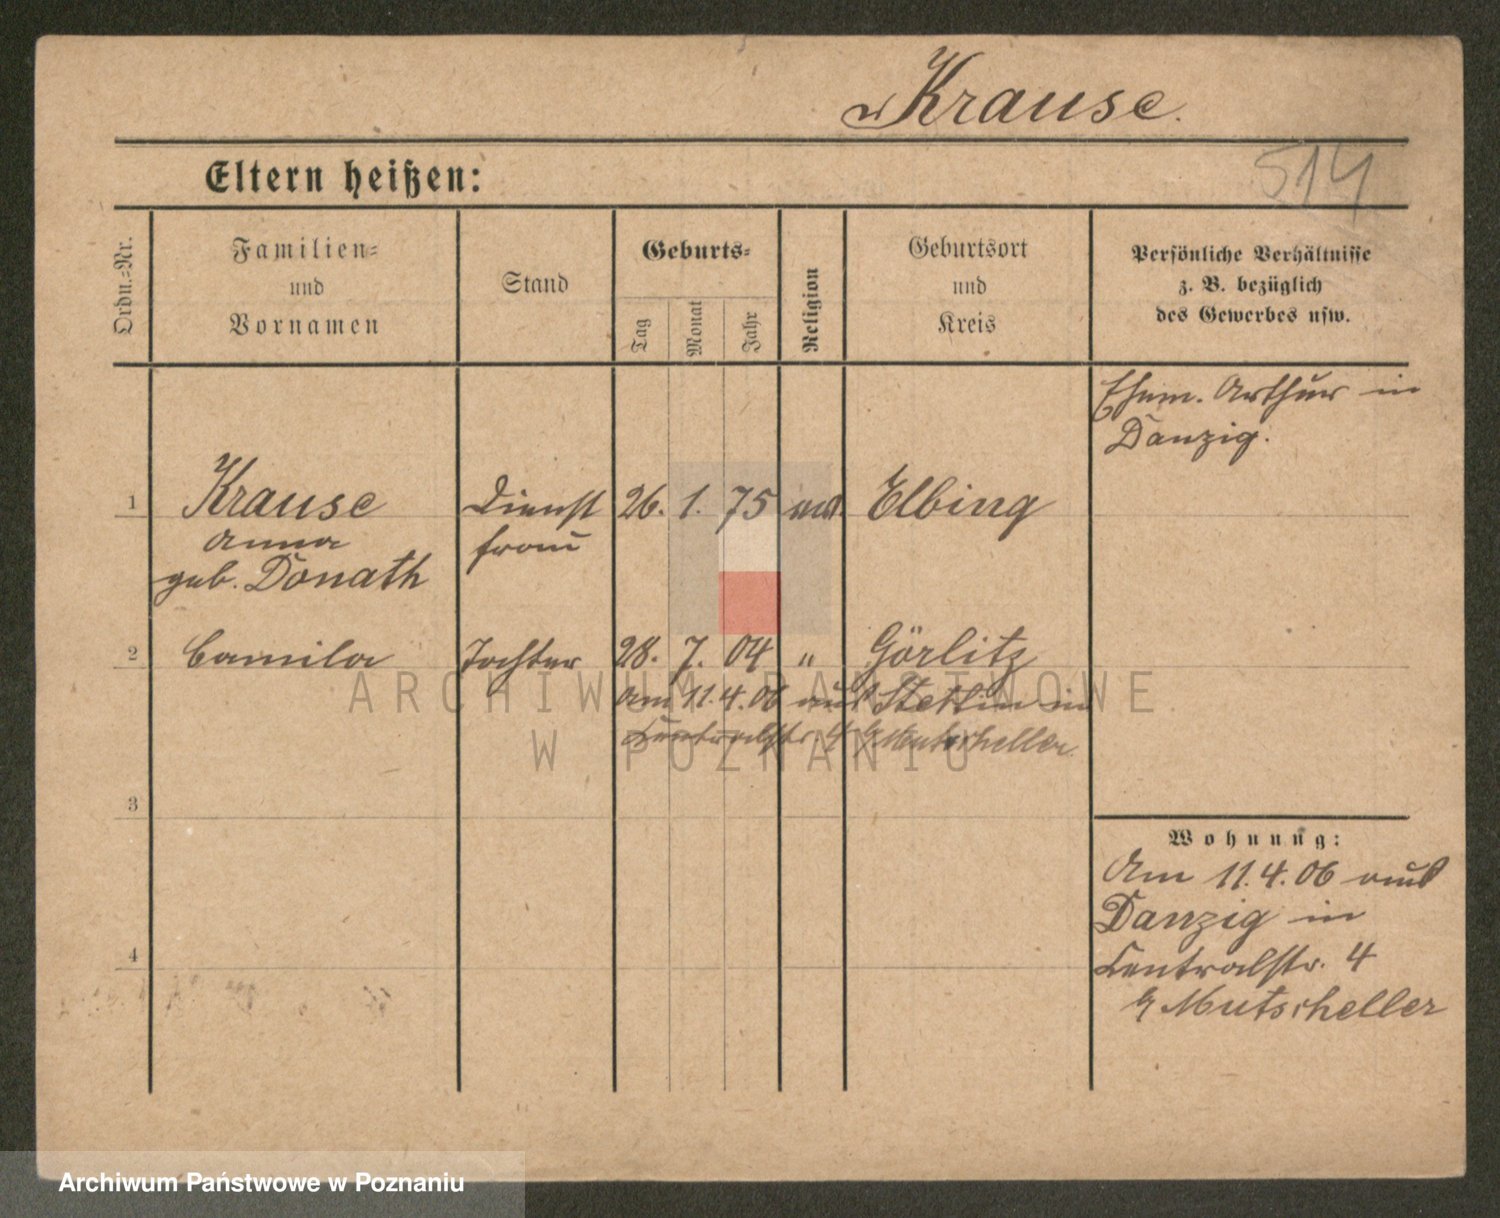 Krause.
Eltern heißen:
514
Ordn.-Nr.
Familien-
und
Vornamen
Stand
Geburts-
Tag
Monat
Jahr
Religion
Geburtsort
und
Kreis
Persönliche Verhältnisse
z. B. bezüglich
des Gewerbes usw.
Ehem. Arthur in
Danzig.
1 Krause Dienst 26. 1. 75 Elbing
Anna frau
geb. Donath
2 Camila Tochter 28. 7. 04 " Görlitz
Am 11.4.06 aus Stettin in
Centralstr. 4 b/ Mutscheller
3
Wohnung:
Am 11.4.06 aus
Danzig in
Centralstr. 4
b/ Mutscheller
4
ARCHIWUM PAŃSTWOWE
W POZNANIU
Archiwum Państwowe w Poznaniu